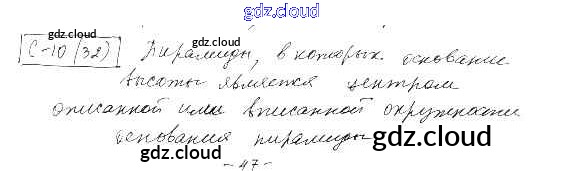 gdz.cloud
С-10 (32) Пирамиды, в которых основание
gdz.cloud
gdz.cloud
высоты является центром
описанной или вписанной окружности
основания пирамиды
gdz.cloud
gdz.cloud
- 47 -